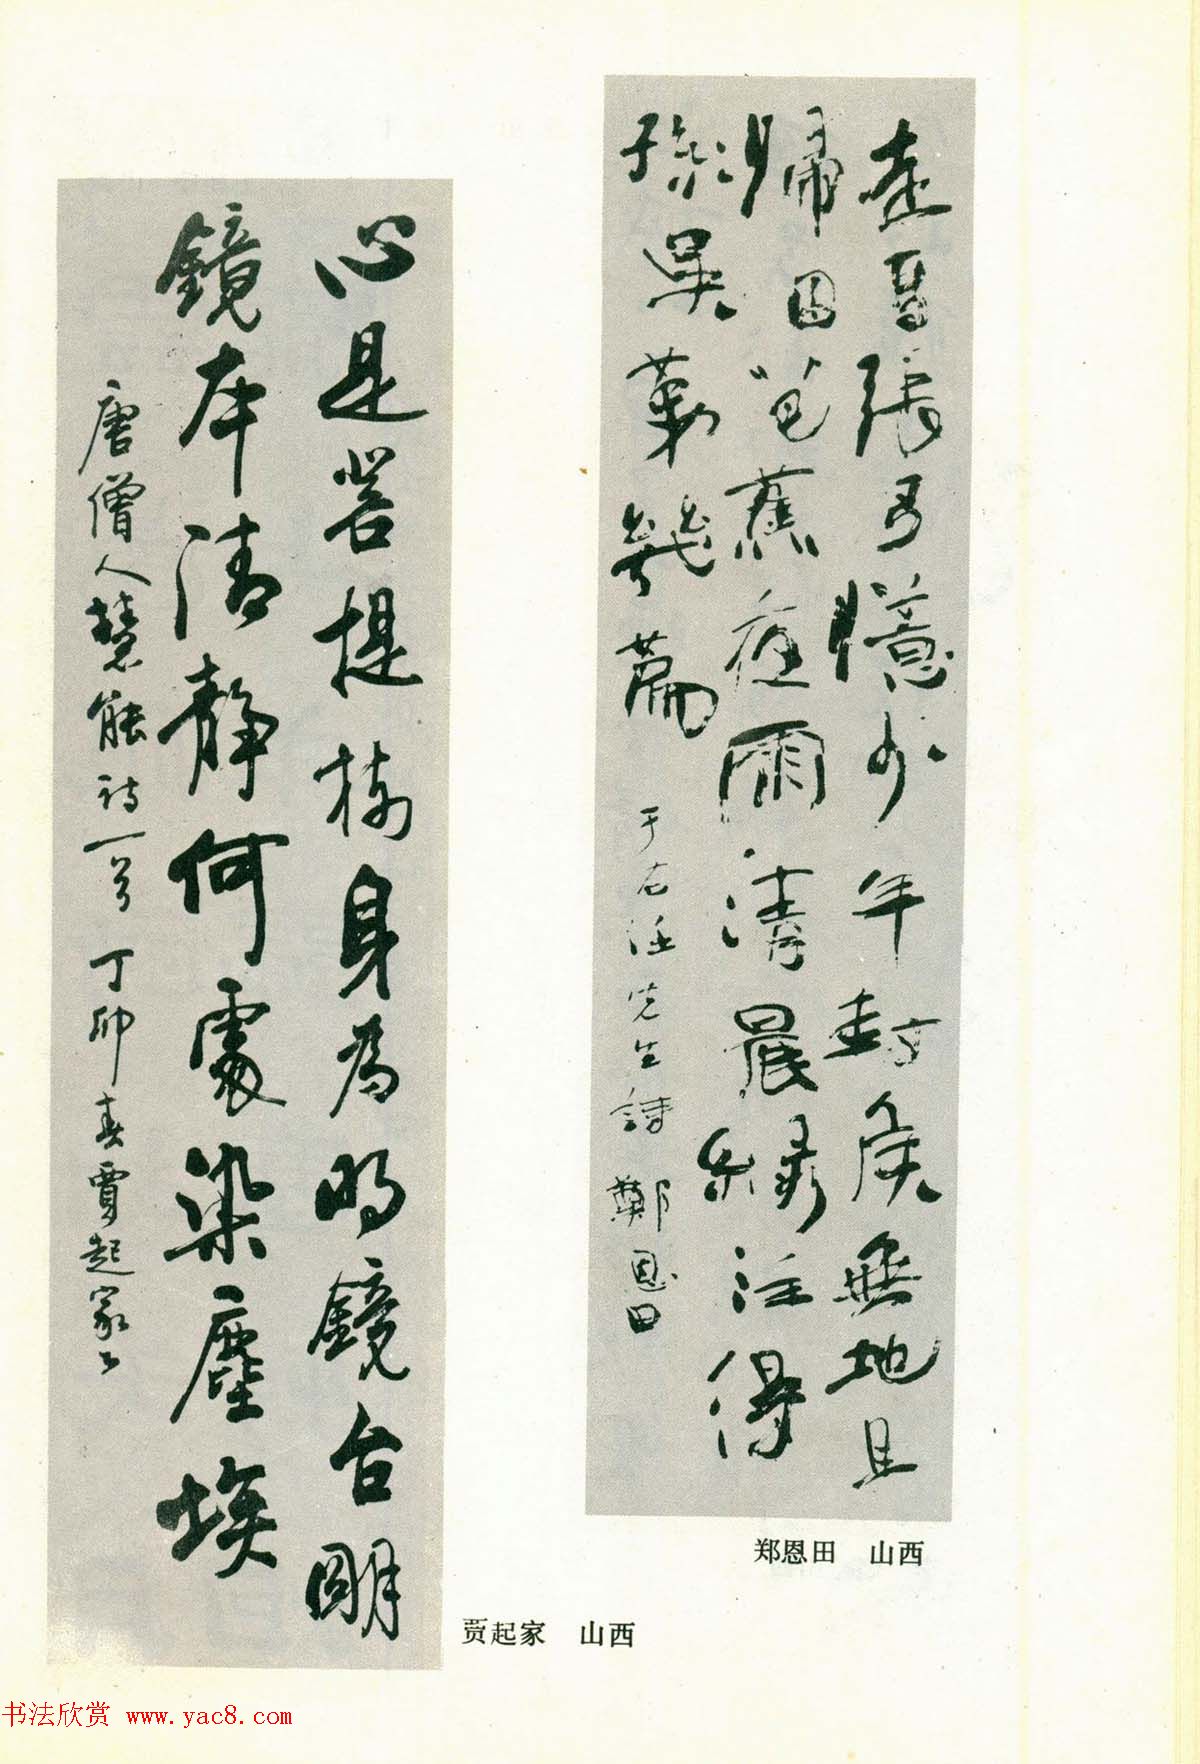 走馬張弓憶少年封侯無地且
歸田芭蕉夜雨清晨綠注得
孫吳第幾篇
于右任先生詩 鄭恩田
郑恩田 山西
心是菩提樹身為明鏡台明
鏡本清靜何處染塵埃
唐僧人慧能詩一首 丁卯春賈起家
贾起家 山西
书法欣赏 www.yac8.com